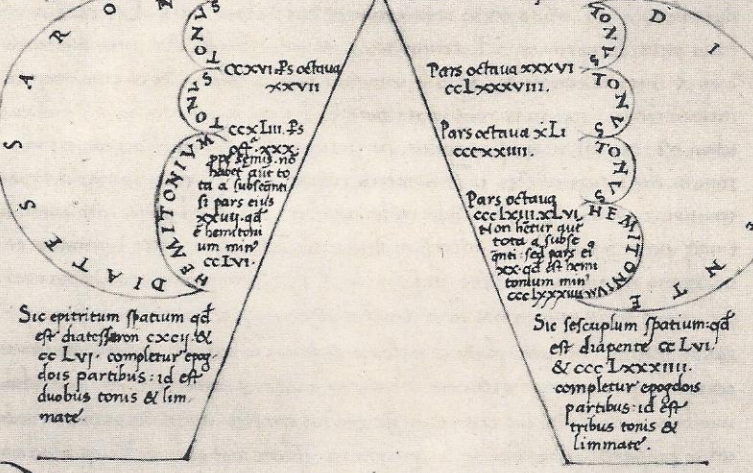 DIATESSARON
TONUS
TONUS
TONUS
HEMITONIVM
CCXVI. Ps octaua
XXVII
CCXLIII. Ps
oct. XXX.
ppe semis. nō
habet aūt to
ta a subseq̄nti
si pars eius
qd
ē hemitoni
um min᾽
CCLVI.
Sic epitritum spatium qd
est diatessaron CXCII. &
CC LVI. completur epog
dois partibus: id est
duobus tonis & lim
mate.
DI
NTE
TONUS
TONUS
TONUS
HEMITONIUM
Pars octaua XXXVI
CCLXXXVIII.
Pars octaua XLI
CCCXXIIII.
Pars octaua
CCCLXIII. XLVI
Non hētur aut
tota a subse
q̄nti: sed pars ei᾽
XX. qd est hemi
tonium min᾽
CCCLXXXIIII
Sic sescuplum spatium: qd
est diapente CC LVI.
& CCC LXXXIIII.
completur epogdois
partibus: id est
tribus tonis &
limmate.